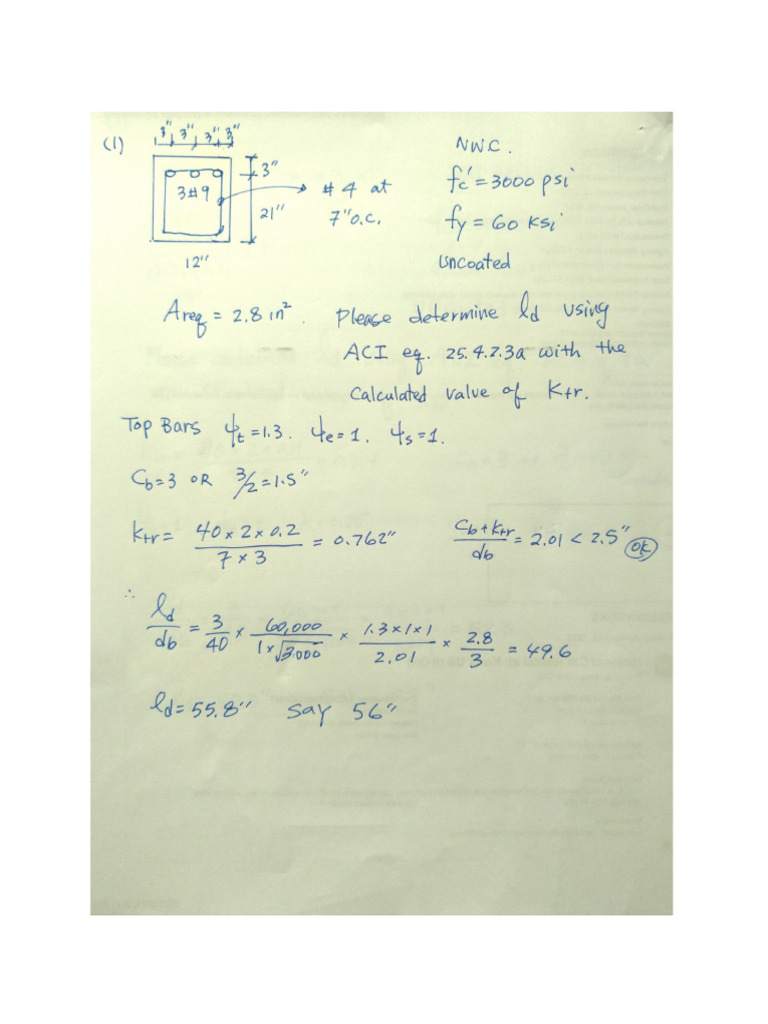 (1) 3" 3" 3" 3" NWC.
3" f'c = 3000 psi
3#9 # 4 at
21" 7" o.c. fy = 60 ksi
12" Uncoated
Areq = 2.8 in² . Please determine ld using
ACI eq. 25.4.2.3a with the
Calculated value of Ktr.
Top Bars ψt = 1.3. ψe = 1. ψs = 1.
Cb = 3 OR 3/2 = 1.5"
Ktr = (40 x 2 x 0.2)/(7 x 3) = 0.762" (Cb + Ktr)/db = 2.01 < 2.5" OK
∴ ld/db = 3/40 x 60,000/(1 x √3000) x (1.3 x 1 x 1)/2.01 x 2.8/3 = 49.6
ld = 55.8" say 56"